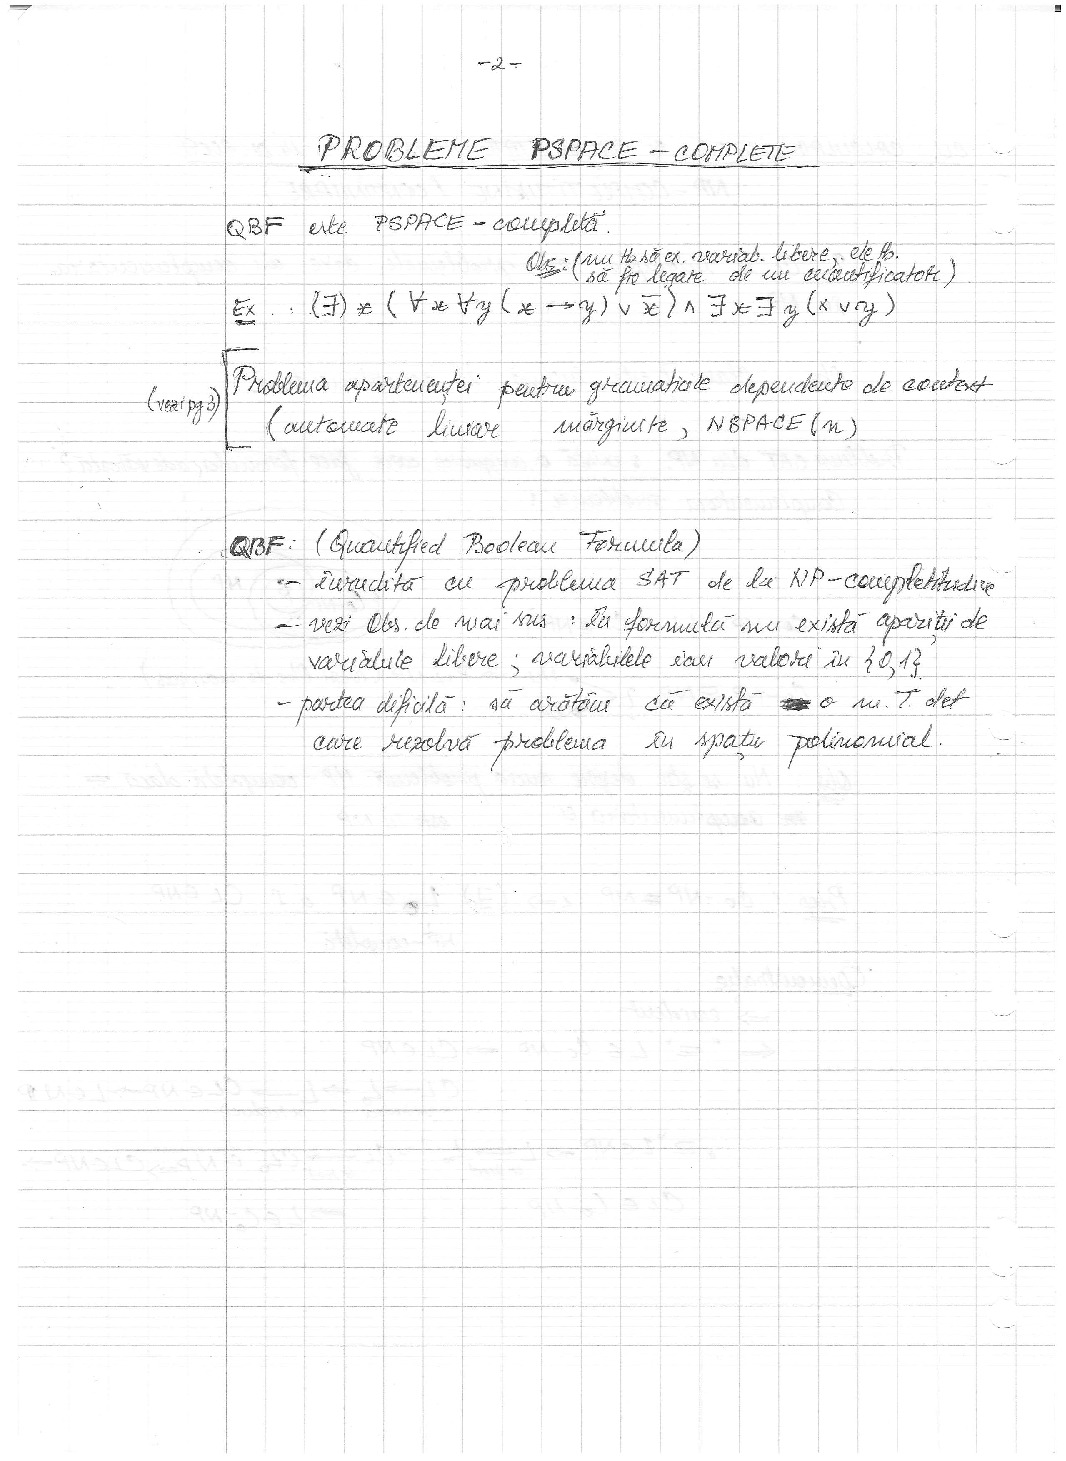 -2-
PROBLEME PSPACE - COMPLETE
QBF este PSPACE - completă.
Obs: (nu tb să ex. variab. libere, ele tb.
să fie legate de un cuantificator)
Ex : (∃) x ( ∀x ∀y ( x → y) ∨ x̅ ) ∧ ∃x ∃y (x ∨ y)
Problema apartenenței pentru gramaticile dependente de context
(vezi pg 3)
(automate liniare mărginite, NSPACE(n)
QBF: (Quantified Boolean Formula)
- înrudită cu problema SAT de la NP-completitudine
- vezi Obs. de mai sus : în formulă nu există apariții de
variabile libere ; variabilele iau valori în {0,1}
- partea dificilă : să arătăm că există o m. T. det
care rezolvă problema în spațiu polinomial.